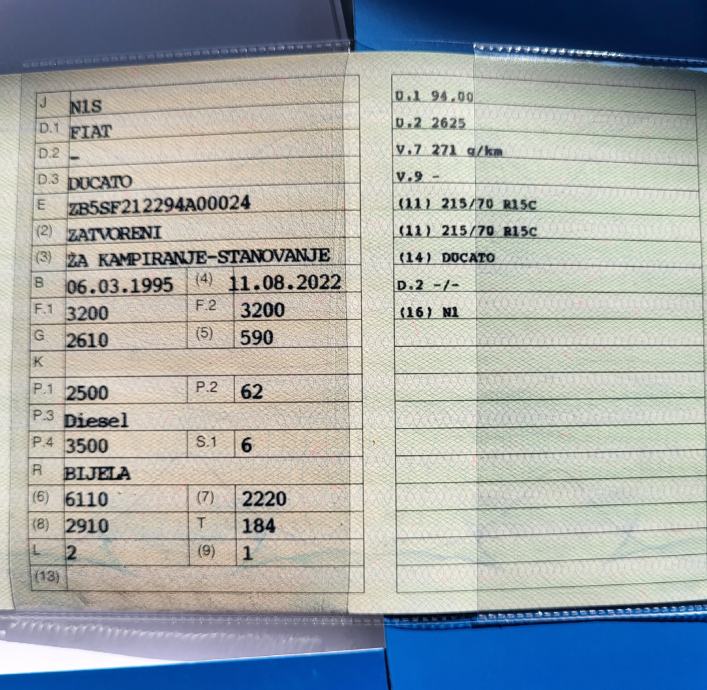 J N1S
D.1 FIAT
D.2 –
D.3 DUCATO
E ZB5SF212294A00024
(2) ZATVORENI
(3) ZA KAMPIRANJE-STANOVANJE
B 06.03.1995 (4) 11.08.2022
F.1 3200 F.2 3200
G 2610 (5) 590
K
P.1 2500 P.2 62
P.3 Diesel
P.4 3500 S.1 6
R BIJELA
(6) 6110 (7) 2220
(8) 2910 T 184
L 2 (9) 1
(13)
U.1 94,00
U.2 2625
V.7 271 g/km
V.9 -
(11) 215/70 R15C
(11) 215/70 R15C
(14) DUCATO
D.2 -/-
(16) N1